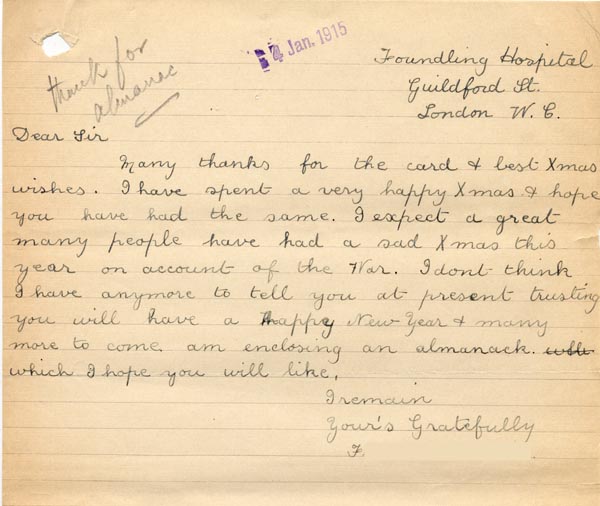 4 Jan. 1915
thank for
almanac
Foundling Hospital
Guildford St.
London W. C.
Dear Sir
Many thanks for the card & best Xmas
wishes. I have spent a very happy Xmas & hope
you have had the same. I expect a great
many people have had a sad Xmas this
year on account of the War. I dont think
I have anymore to tell you at present trusting
you will have a happy New Year & many
more to come. am enclosing an almanack.
which I hope you will like.
I remain
Your's Gratefully
F